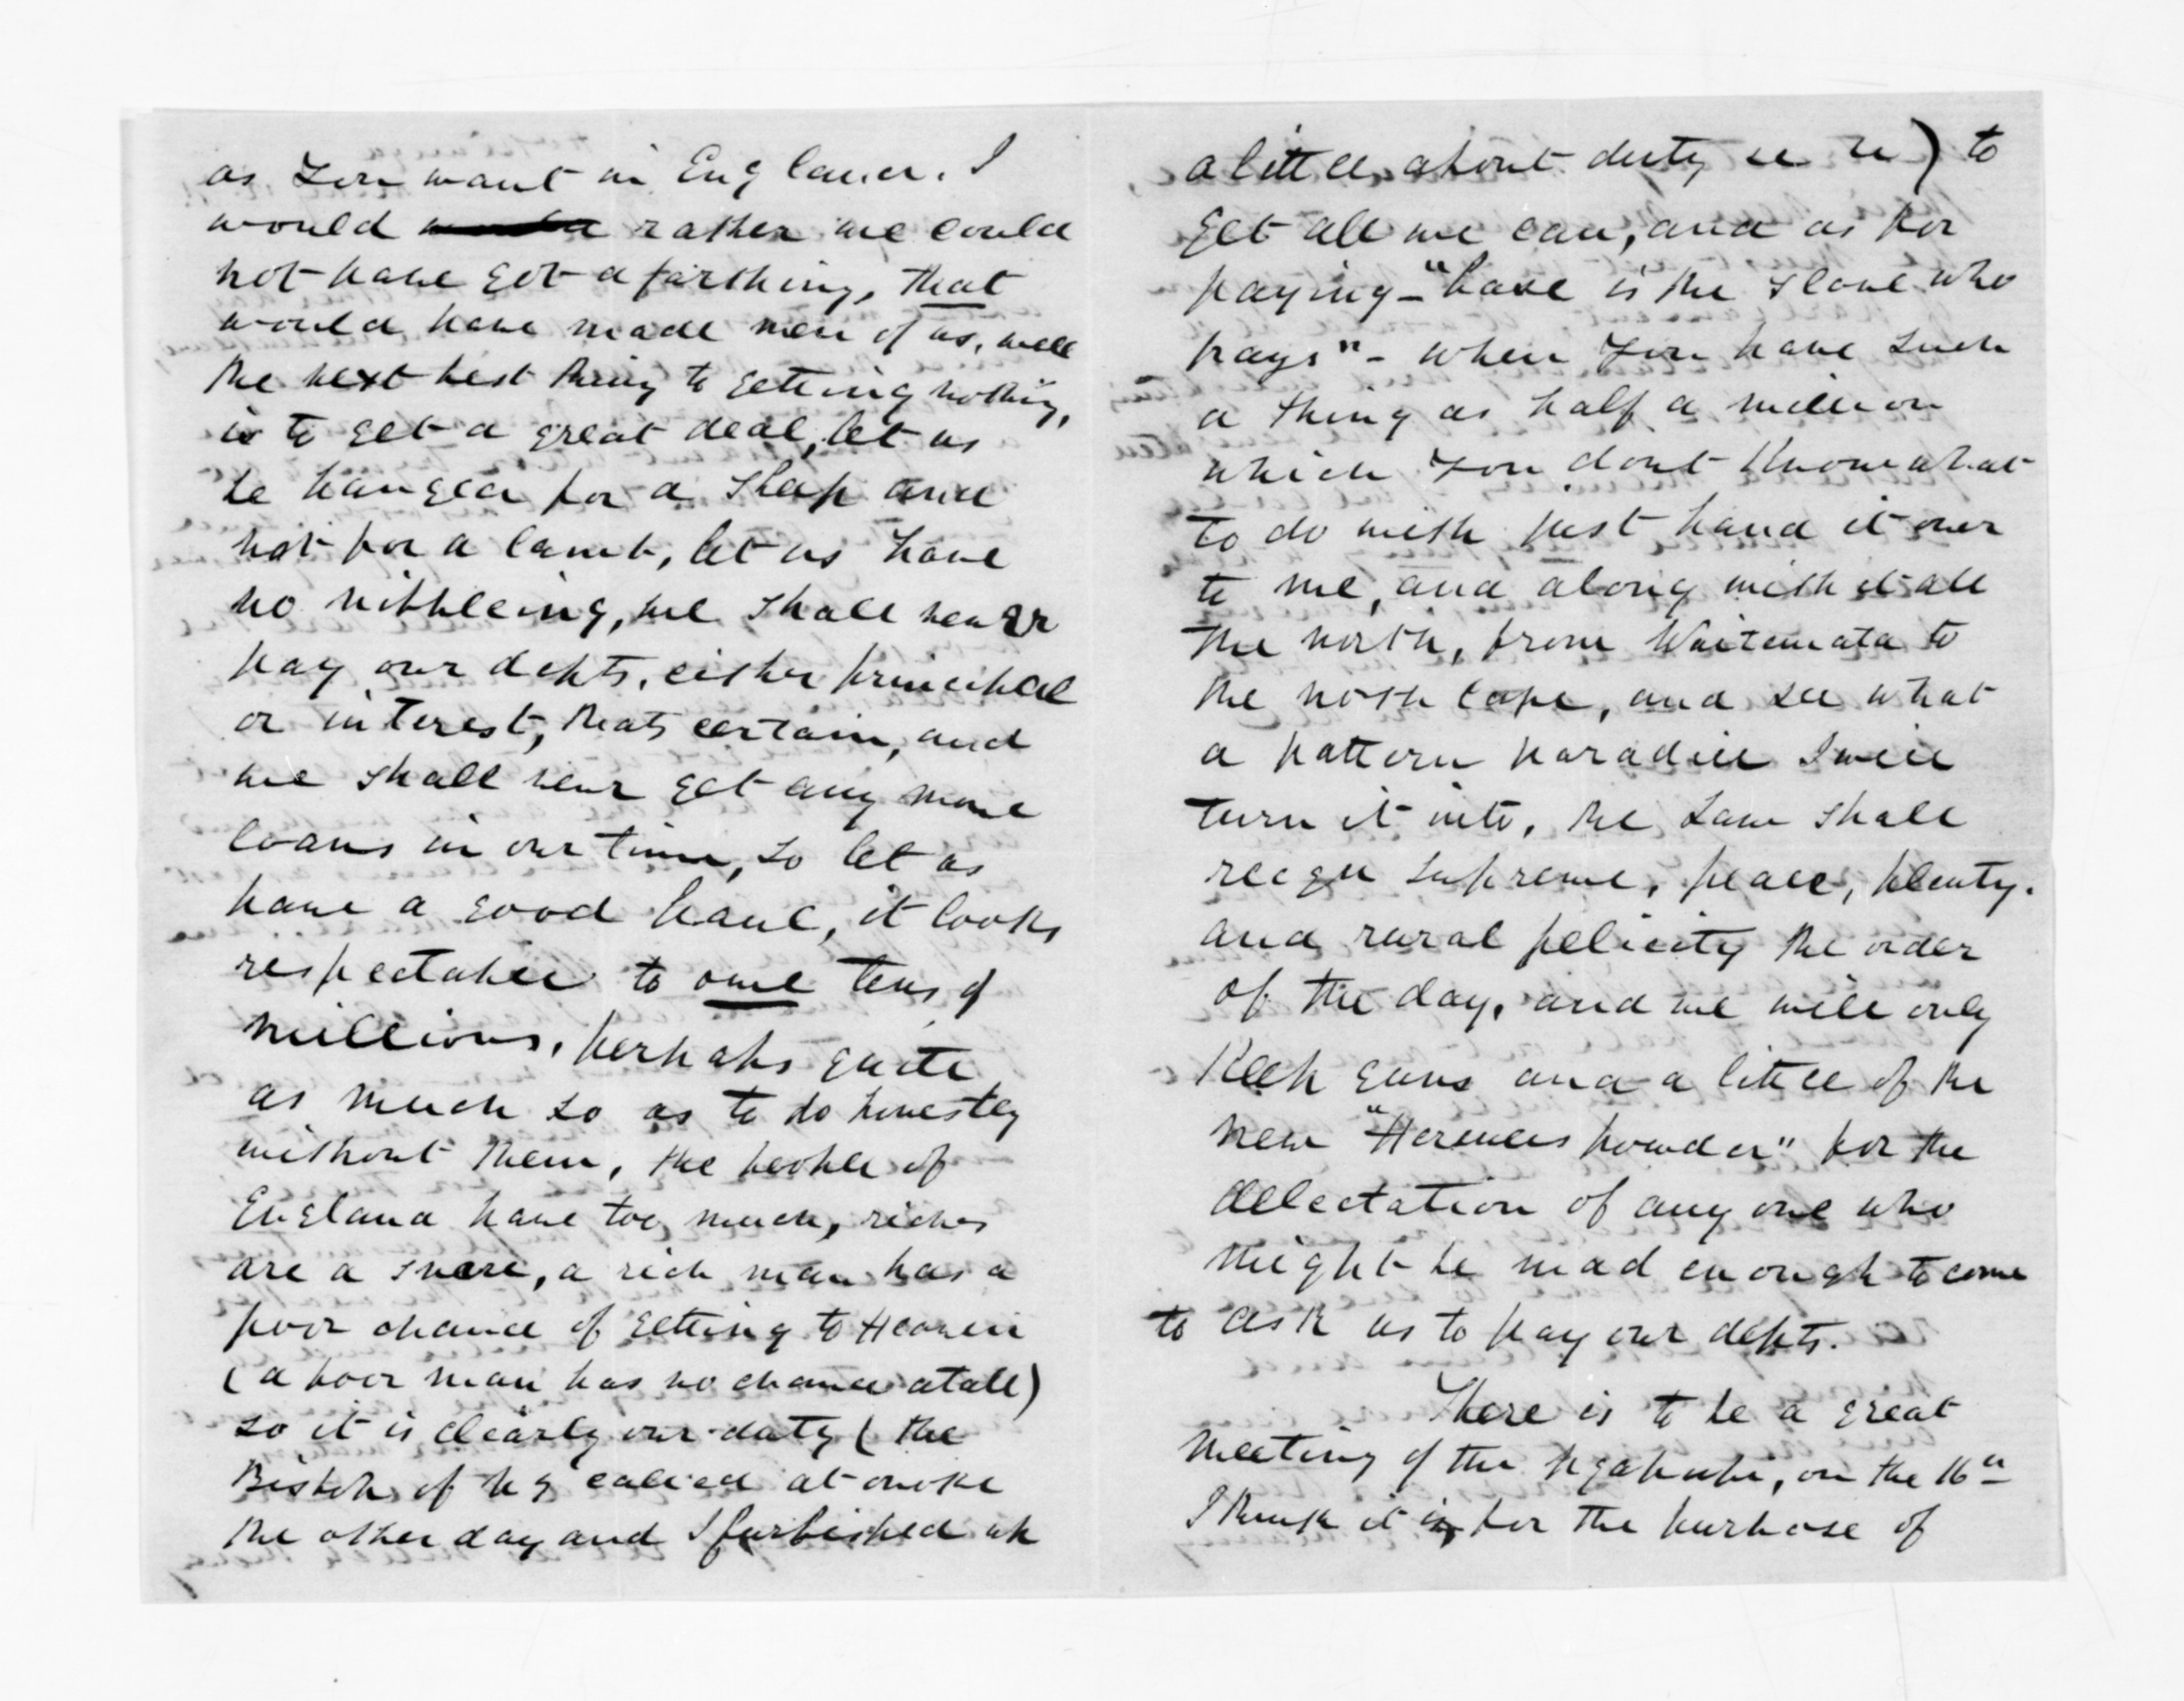 as you want in England. I
would rather we could
not have got a farthing, that
would have made men of us, well
the next best thing to getting nothing,
is to get a great deal, let us
be hanged for a sheep and
not for a lamb, let us have
no nibbleing, we shall never
pay our debts, either principal
or interest, thats certain, and
we shall never get any more
loans in our time, so let us
have a good haul, it looks
respectable to owe tens of
millions, perhaps quite
as much so as to do honestly
without them, the people of
England have too much, riches
are a snare, a rich man has a
poor chance of getting to Heaven
(a poor man has no chance at all)
so it is clearly our duty (the
Bishop of NZ called at onoke
the other day and I furbished up
a little about duty &c &c) to
get all we can, and as for
paying - "base is the slave who
pays" - when you have such
a thing as half a million
which you dont know what
to do with just hand it over
to me, and along with it all
the north, from Waitemata to
the north cape, and see what
a pattern paradise I will
turn it into, the Law shall
reign supreme, peace, plenty.
and rural felicity the order
of the day, and we will only
Keep guns and a little of the
new "Hercules powder" for the
delectation of any one who
might be mad enough to come
to ask us to pay our debts.
There is to be a great
meeting of the Ngapuhi, on the 16th
I think it is, for the purpose of